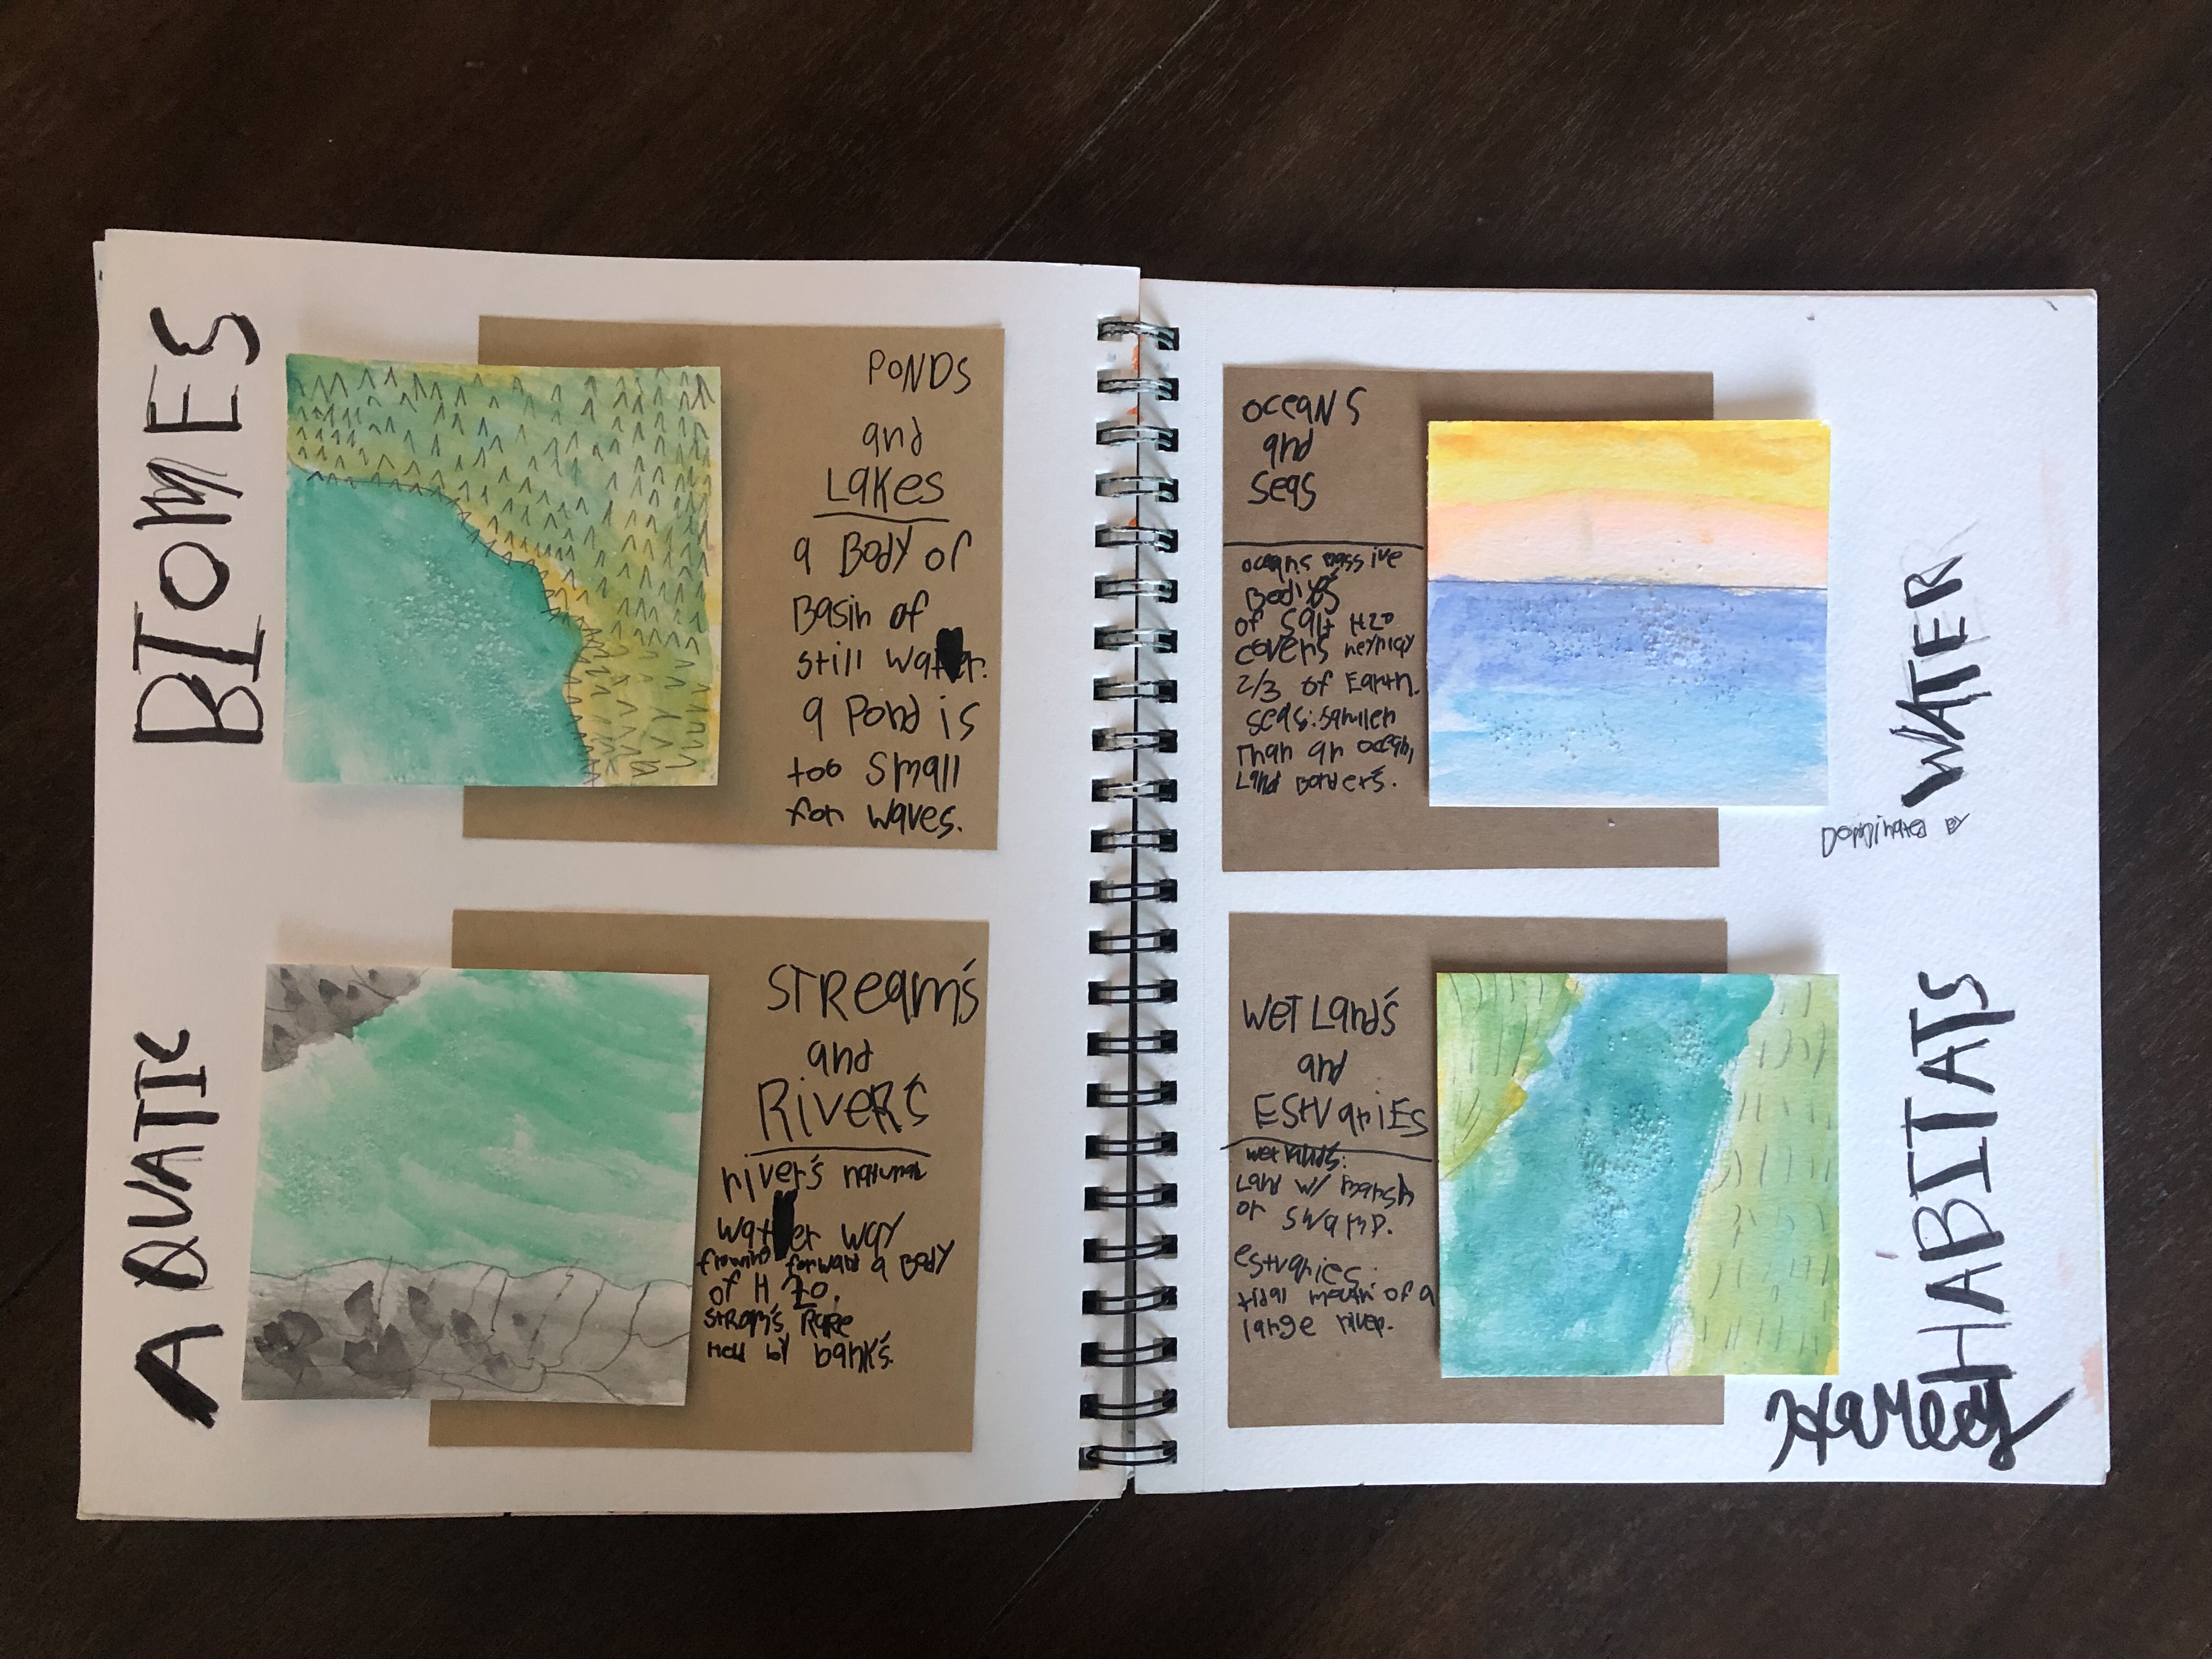 AQUATIC BIOMES
PONDS
and
Lakes
a Body of
Basin of
still water.
a Pond is
too small
for waves.
STReam's
and
RiveR's
river's natural
water way
flowing forward a Body
of H2o.
Held by bank's.
oceans
and
seas
oceans massive
of salt H2o
covers
2/3 of Earth.
Than an ocean,
Land Borders.
WeT Land's
and
EstuariEs
Land w/ marsh
or swamp.
estuaries:
tidal mouth of a
large river.
HABITATS
Dominated BY
WATER